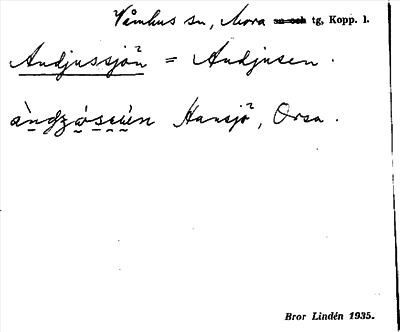 Våmhus sn, Mora ~~sn och~~ tg, Kopp. l.
Andjussjön = Andjusen.
Hansjö, Orsa.
Bror Lindén 1935.